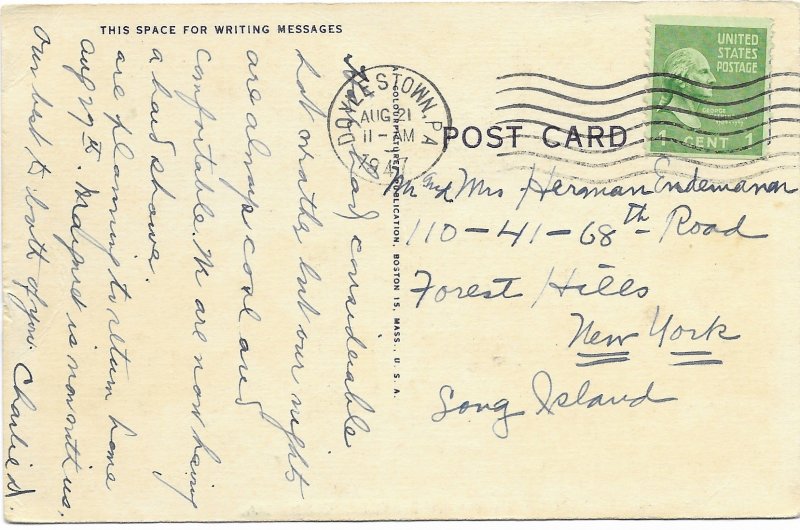 THIS SPACE FOR WRITING MESSAGES
had considerable
hot weather but our nights
are always cool and
comfortable. We are now having
a hard shower.
are planning to return home
Aug 29th. Margaret is now with us.
Our best to both of you. Charlie D.
A COLOURPICTURE PUBLICATION, BOSTON 15, MASS., U. S. A.
DOYLESTOWN, PA
AUG 21
11-AM
1947
UNITED
STATES
POSTAGE
GEORGE
1 CENT 1
POST CARD
Mr and Mrs Herman Endemann
110-41-68th Road
Forest Hills
New York
Long Island